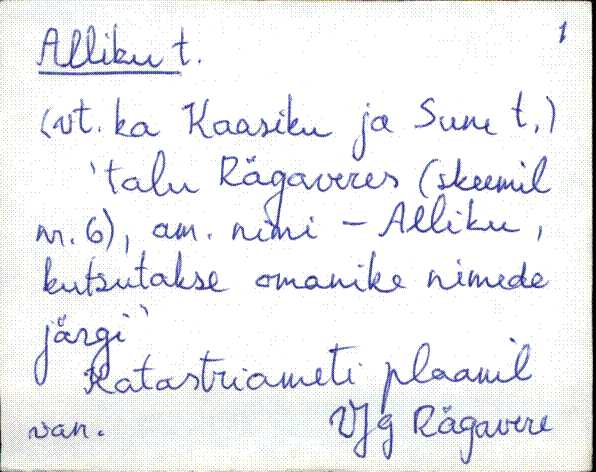 1
Alliku t.
(vt. ka Kaasiku ja Suure t.)
'talu Rägaveres (skeemil
nr. 6), am. nimi – Alliku,
kutsutakse omanike nimede
järgi'
Katastriameti plaanil
van. VJg Rägavere